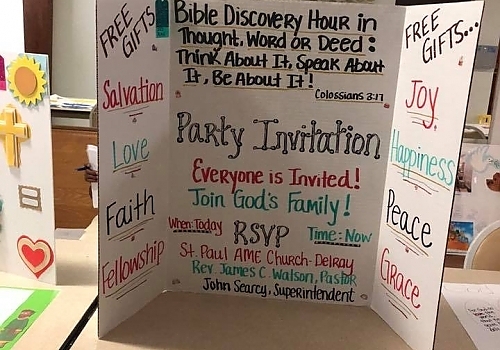 FREE
GIFTS
Salvation
Love
Faith
Fellowship
Bible Discovery Hour in
Thought, Word or Deed:
Think About It, Speak About
It, Be About It!
Colossians 3:17
Party Invitation
Everyone is Invited!
Join God's Family!
When: Today
RSVP
Time: Now
St. Paul AME Church-Delray
Rev. James C. Watson, Pastor
John Searcy, Superintendent
FREE
GIFTS...
Joy
Happiness
Peace
Grace